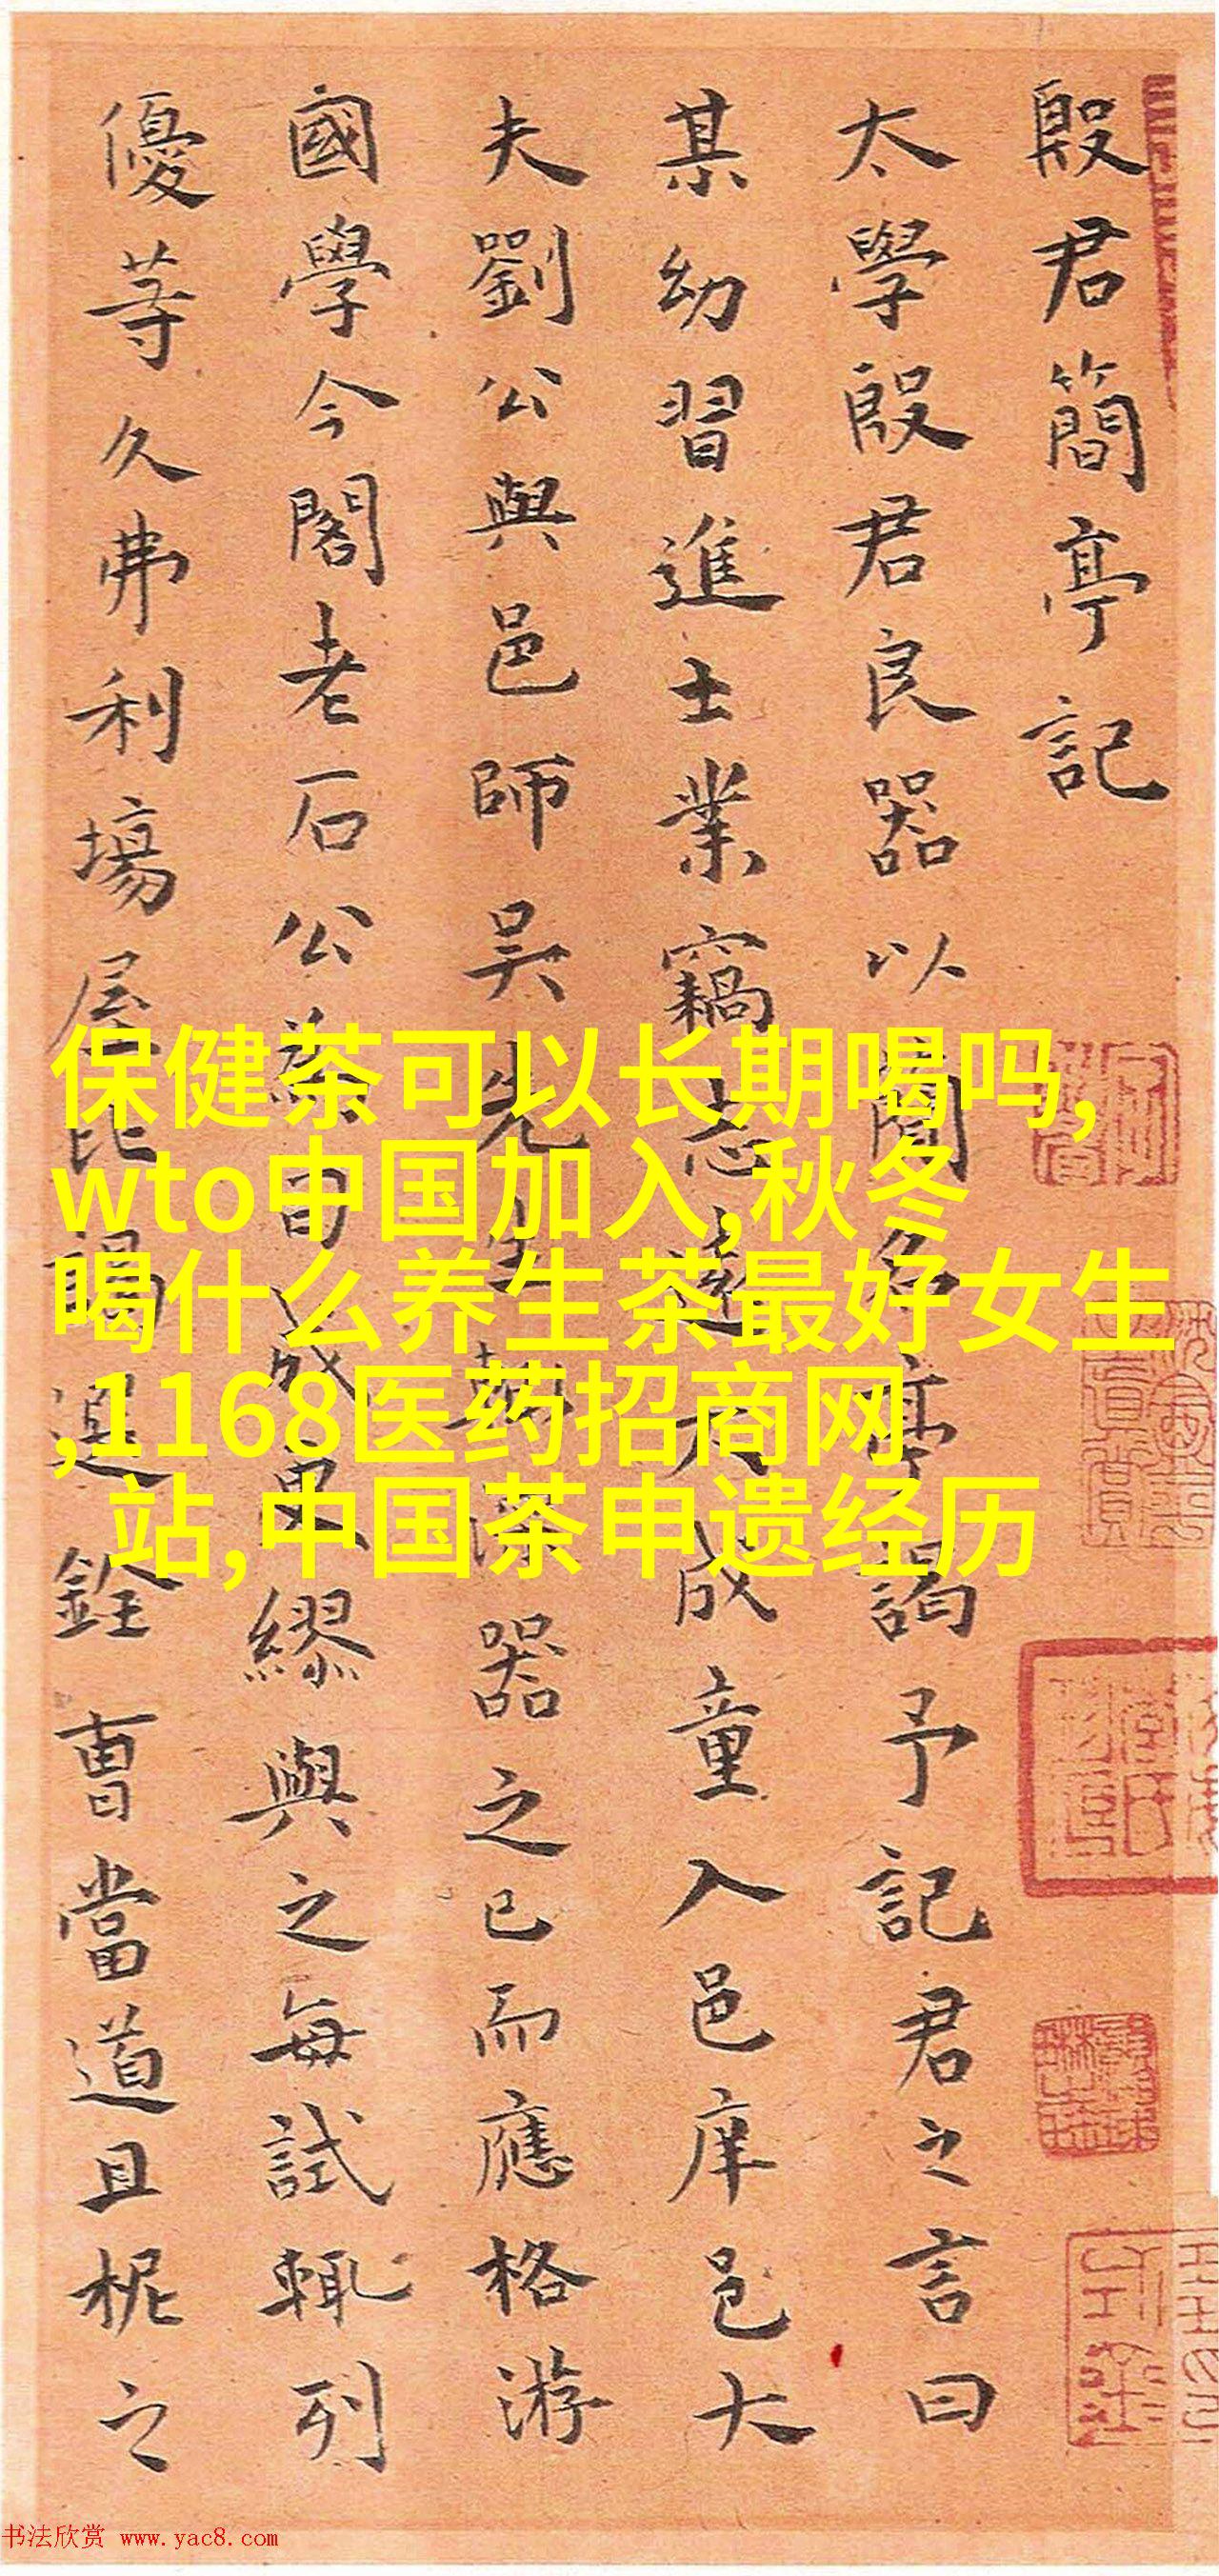 殷君簡亭記
太學殷君良器以簡名亭謁予記君之言曰
某幼習進士業竊志遠大成童入邑庠邑大
夫劉公與邑師吳先生深器之已而應格游
國學今閣老石公成繆與之每試輒列
優等久弗利場屋比謁選銓曹當道且柅之
保健茶可以长期喝吗,
wto中国加入,秋冬
喝什么养生茶最好女生
,1168医药招商网
站,中国茶申遗经历
书法欣赏 www.yac8.com